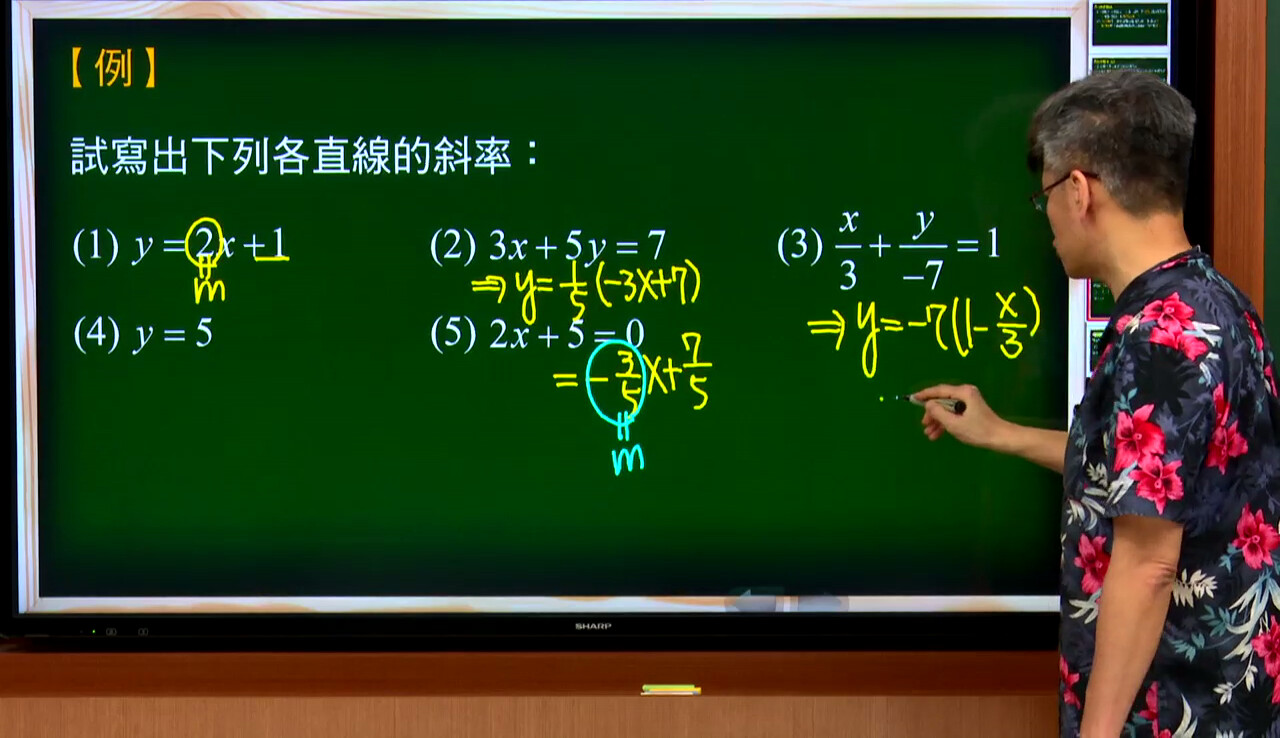 【例】
試寫出下列各直線的斜率：
(1) y = 2x + 1
= m
(2) 3x + 5y = 7
⇒ y = 1/5 (-3x+7)
= -3/5 x + 7/5
= m
(3) x/3 + y/-7 = 1
⇒ y = -7(1 - x/3)
(4) y = 5
(5) 2x + 5 = 0
SHARP